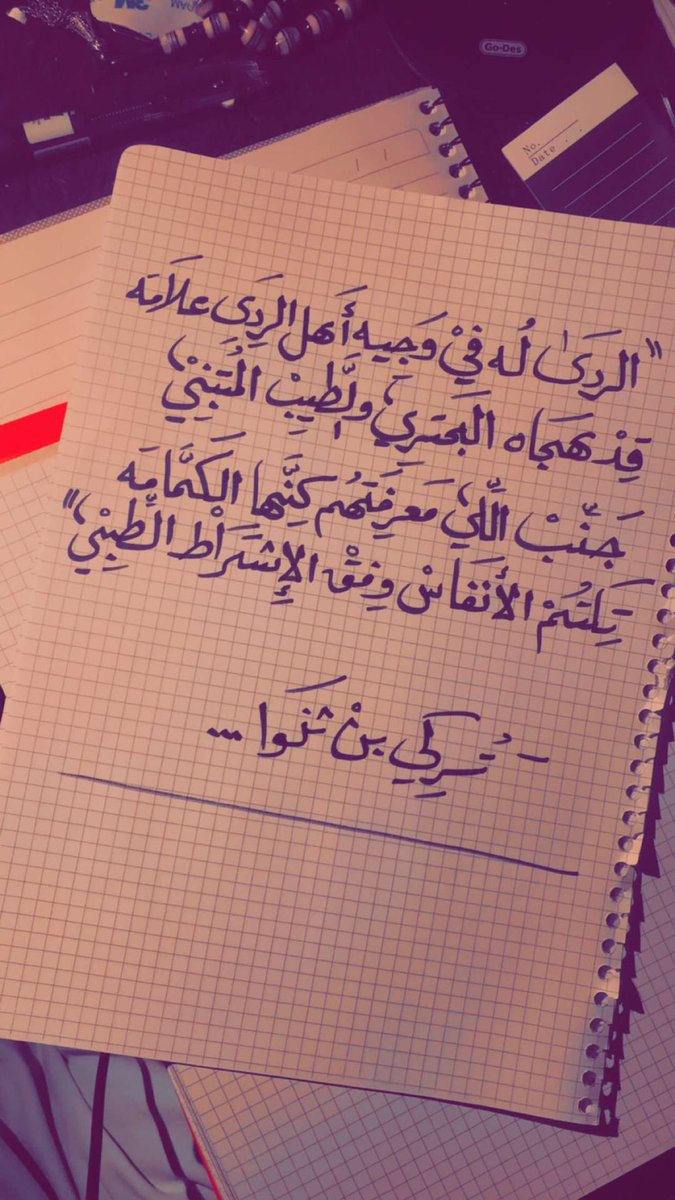 3M
Go-Des
No.
Date
"الرِدىٰ لُه فِيْ وَجِيه أَهل الرِدَى عَلاَمَه
قِدْ هَجَاه البَحَتِرِي، ولَّطِيبْ المُتَنِبْيْ
جَنّبْ اللِّيْ مَعرِفَتهُم كِنَّها الكَمَّامِه
تِكتُمْ الأَنفَاسْ وِفقْ الإِشتِرَاْط الطِبْيْ"
- تُركِي بنْ ثنَوا ...